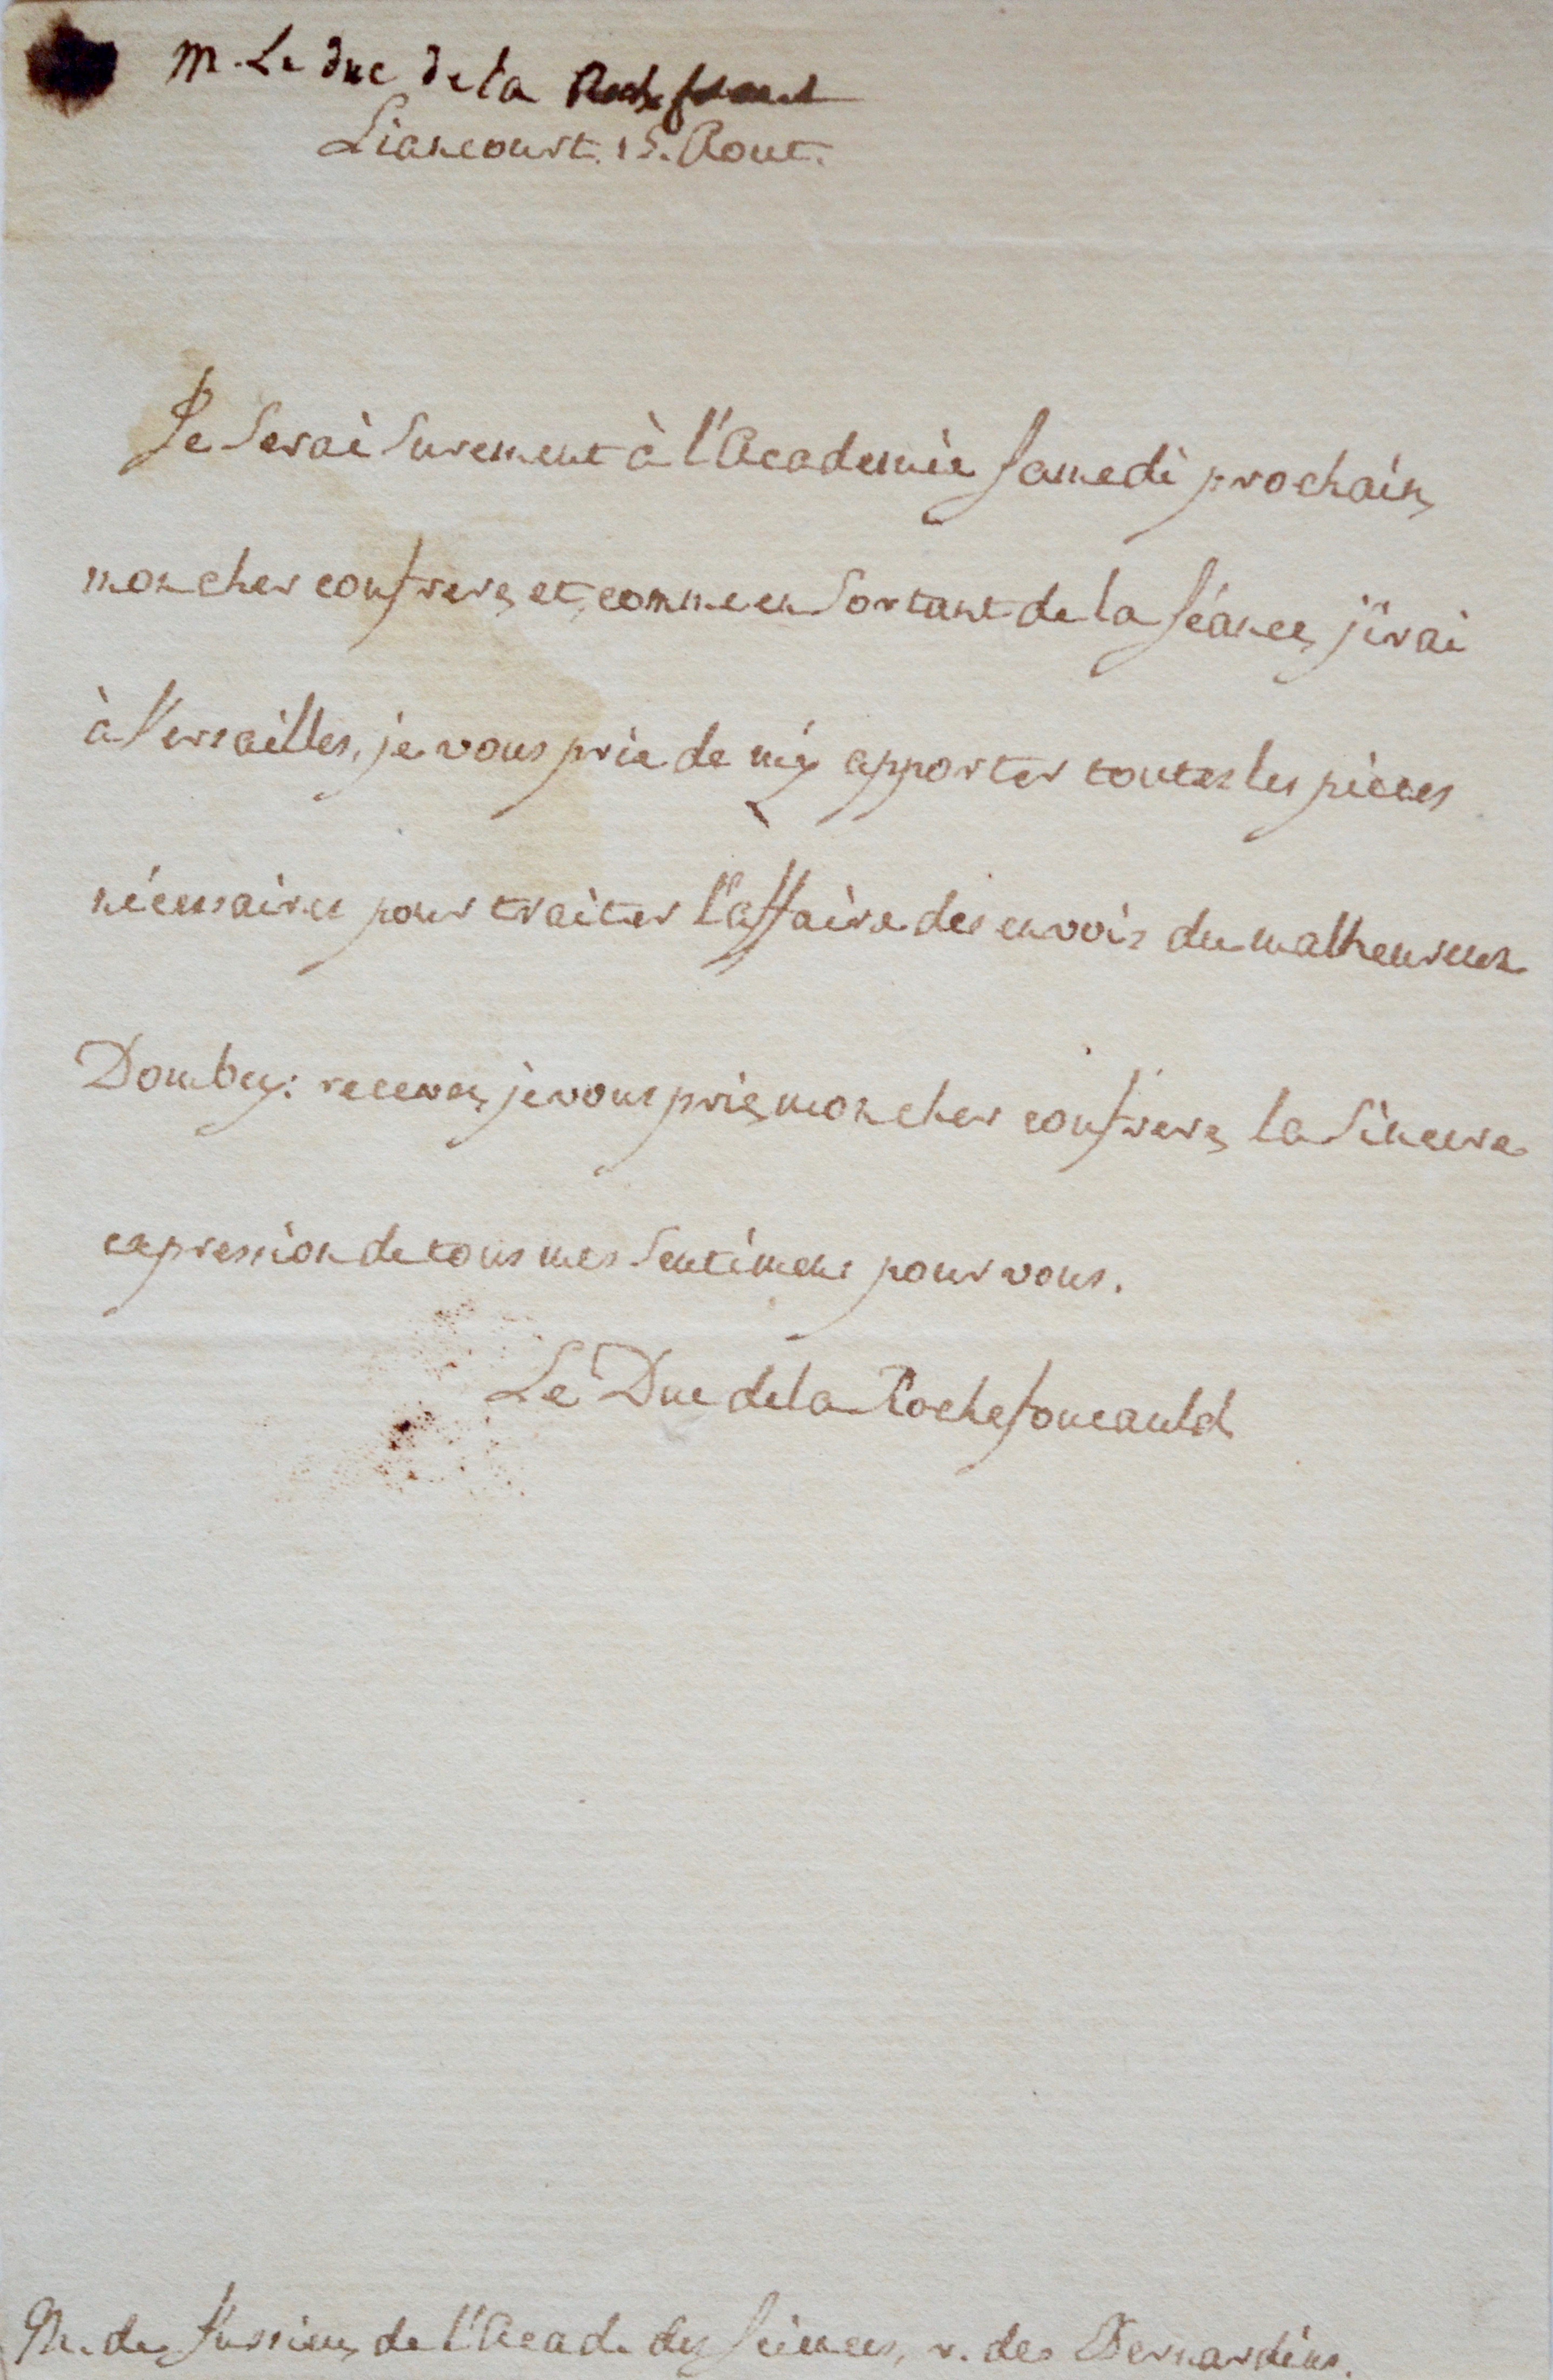 M. Le Duc de la Rochefoucault
Liancourt. 15. Aout.
Je serai surement à l'Academie samedi prochain,
mon cher confrere, et comme en sortant de la séance, j'irai
à Versailles, je vous prie de m'y apporter toutes les pièces
nécessaires pour traiter l'affaire des envois du malheureux
Dombey: recevez, je vous prie, mon cher confrere, la sincere
expression de tous mes sentimens pour vous.
Le Duc de la Rochefoucauld
M. de Jussieu, de l'Acad. des Sciences, r. des Bernardins.